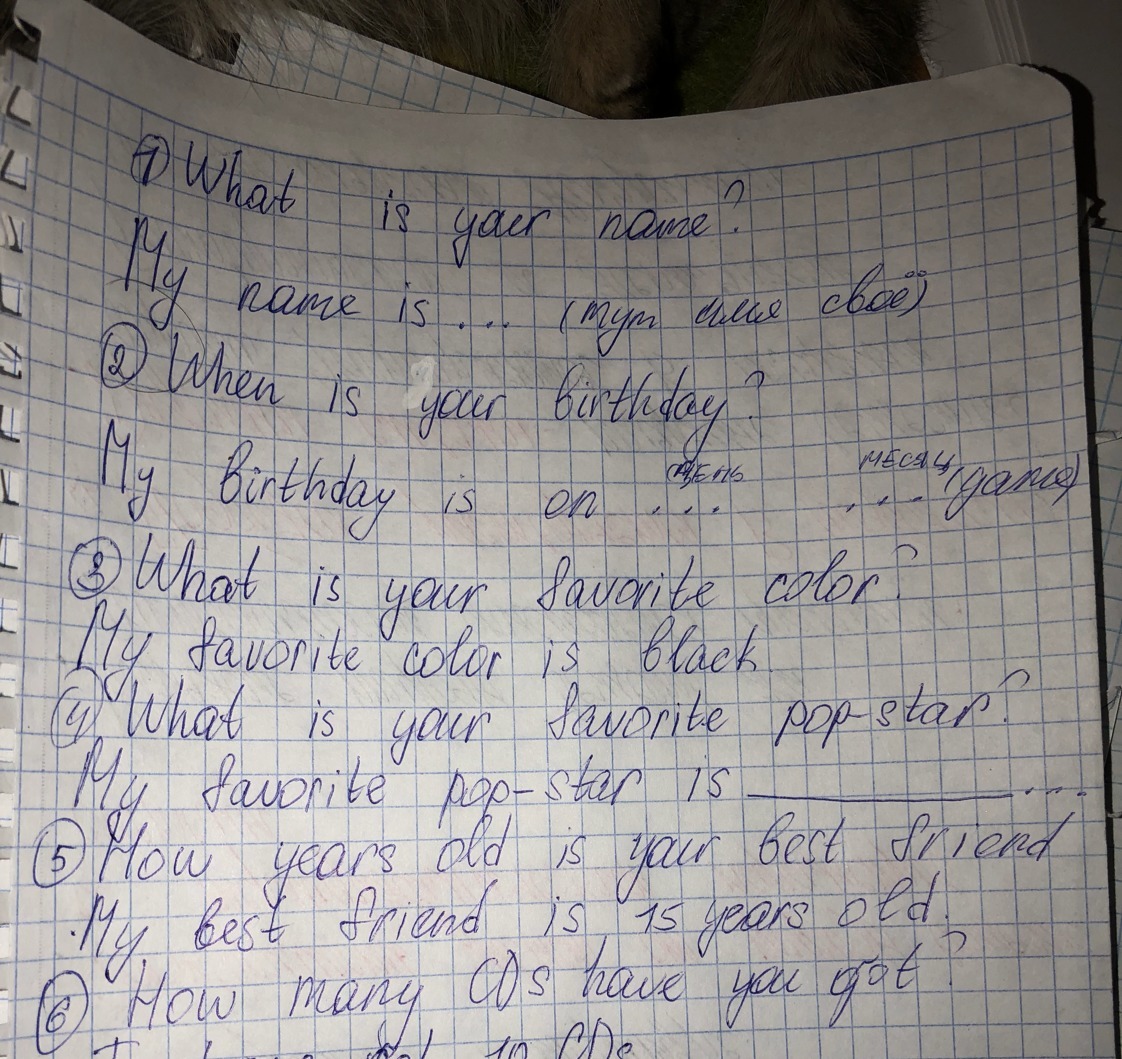 ① What is your name?
My name is ... (тут имя своё)
② When is your birthday?
My birthday is on ... (день) ... месяц (дата)
③ What is your favorite color?
My favorite color is black.
④ What is your favorite pop-star?
My favorite pop-star is ________...
⑤ How years old is your best friend
My best friend is 15 years old.
⑥ How many CDs have you got?
10 CDs